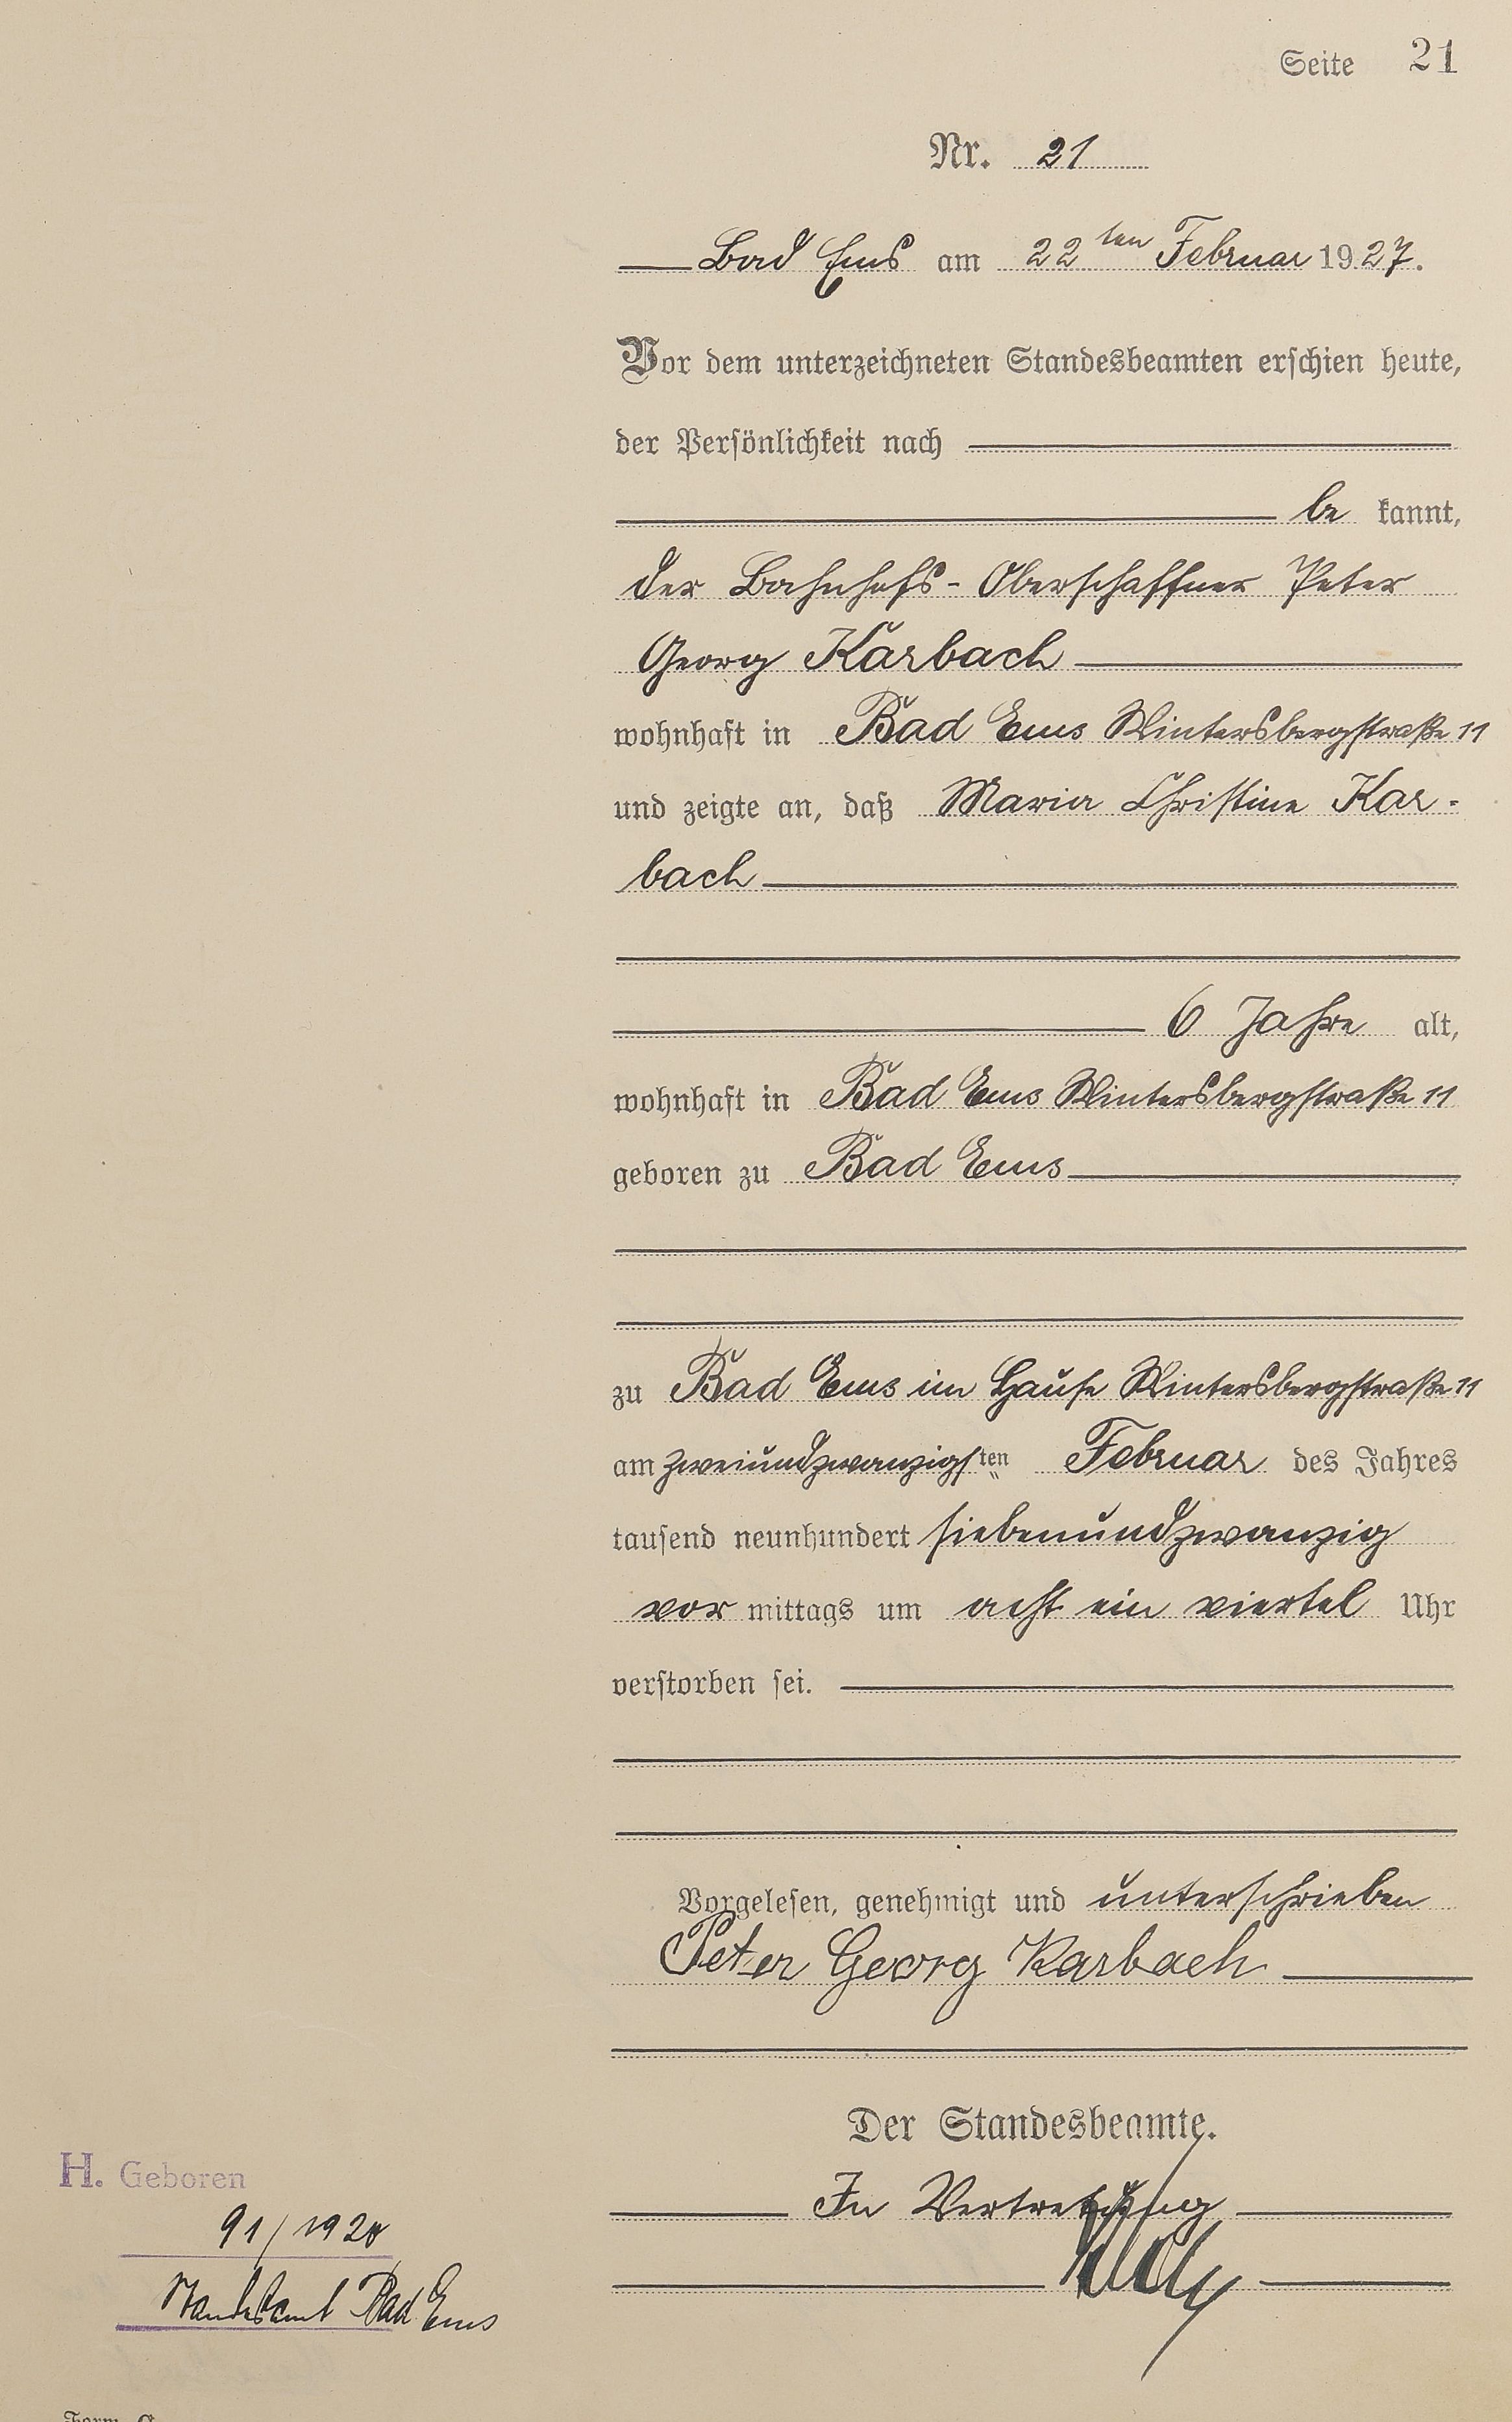 Seite 21
Nr. 21
Bad Ems am 22ten Februar 1927.
Vor dem unterzeichneten Standesbeamten erschien heute,
der Persönlichkeit nach
be kannt,
der Bahnhofs-Oberschaffner Peter
Georg Karbach
wohnhaft in Bad Ems Wintersbergstraße 11
und zeigte an, daß Maria Christine Kar-
bach
6 Jahre alt,
wohnhaft in Bad Ems Wintersbergstraße 11
geboren zu Bad Ems
zu Bad Ems im Hause Wintersbergstraße 11
am zweiundzwanzigsten Februar des Jahres
tausend neunhundert siebenundzwanzig
vor mittags um acht ein viertel Uhr
verstorben sei.
Vorgelesen, genehmigt und unterschrieben
Peter Georg Karbach
Der Standesbeamte.
In Vertretung
H. Geboren
91/1920
Standesamt Bad Ems
Form. C